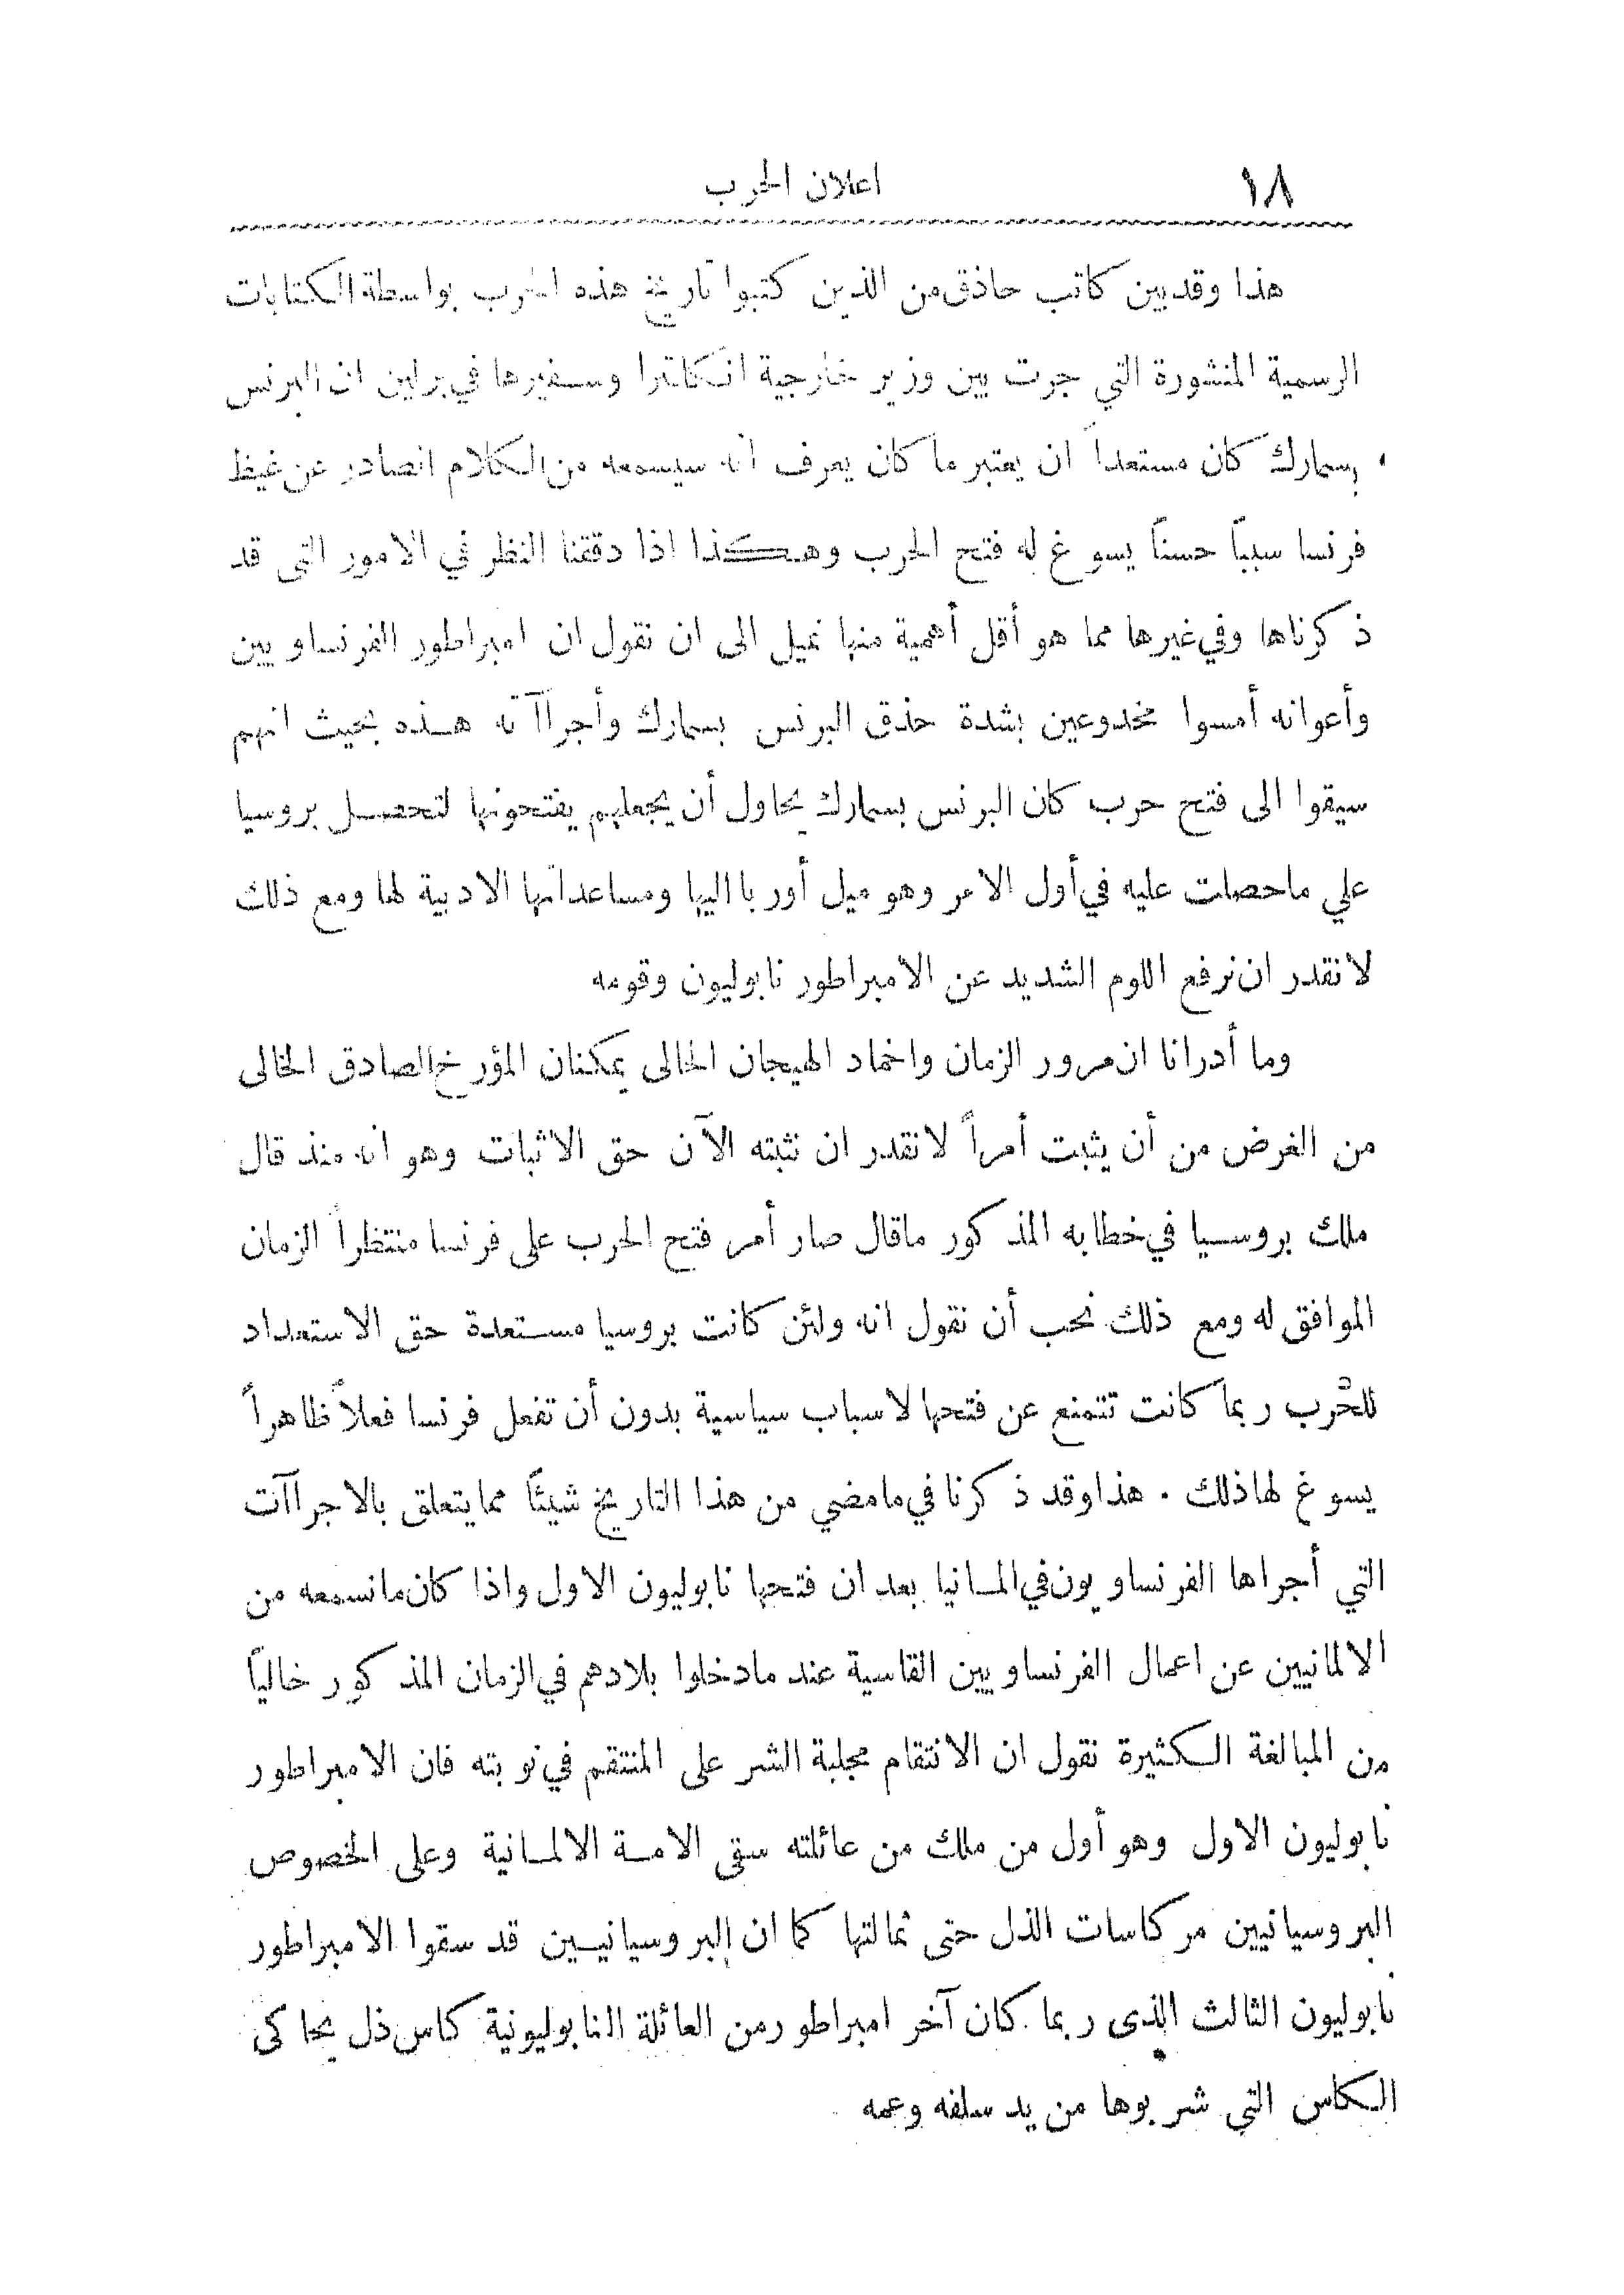 ١٨
اعلان الحرب
هذا وقد بين كاتب حاذق من الذين كتبوا تاريخ هذه الحرب بواسطة الكتابات
الرسمية المنشورة التي جرت بين وزير خارجية انكلترا وسفيرها في برلين ان البرنس
بسمارك كان مستعداً ان يعتبر ما كان يعرف انه سيسمعه من الكلام الصادر عن غيظ
فرنسا سبباً حسناً يسوغ له فتح الحرب وهكذا اذا دققنا النظر في الامور التي قد
ذكرناها وفي غيرها مما هو أقل أهمية منها نميل الى ان نقول ان امبراطور الفرنساويين
وأعوانه أمسوا مخدوعين بشدة حذق البرنس بسمارك وأجراآته هذه بحيث انهم
سيقوا الى فتح حرب كان البرنس بسمارك يحاول أن يجعلهم يفتحونها لتحصل بروسيا
علي ما حصلت عليه في أول الامر وهو ميل أوربا اليها ومساعداتها الادبية لها ومع ذلك
لا نقدر ان نرفع اللوم الشديد عن الامبراطور نابوليون وقومه
وما أدرانا ان مرور الزمان واخماد الهيجان الحالى يمكنان المؤرخ الصادق الخالى
من الغرض من أن يثبت أمراً لا نقدر ان نثبته الآن حق الاثبات وهو انه منذ قال
ملك بروسيا في خطابه المذكور ما قال صار أمر فتح الحرب على فرنسا منتظراً الزمان
الموافق له ومع ذلك نحب أن نقول انه ولئن كانت بروسيا مستعدة حق الاستعداد
للحرب ربما كانت تتمنع عن فتحها لاسباب سياسية بدون أن تفعل فرنسا فعلاً ظاهراً
يسوغ لها ذلك . هذا وقد ذكرنا في ما مضي من هذا التاريخ شيئاً مما يتعلق بالاجراآت
التي أجراها الفرنساويون في المانيا بعد ان فتحها نابوليون الاول واذا كان ما نسمعه من
الالمانيين عن اعمال الفرنساويين القاسية عند ما دخلوا بلادهم في الزمان المذكور خالياً
من المبالغة الكثيرة نقول ان الانتقام مجلبة الشر على المنتقم في نوبته فان الامبراطور
نابوليون الاول وهو أول من ملك من عائلته سقى الامة الالمانية وعلى الخصوص
البروسيانيين مر كاسات الذل حتى ثمالتها كما ان البروسيانيين قد سقوا الامبراطور
نابوليون الثالث الذى ربما كان آخر امبراطور من العائلة النابوليونية كاس ذل يحاكى
الكاس التي شربوها من يد سلفه وعمه